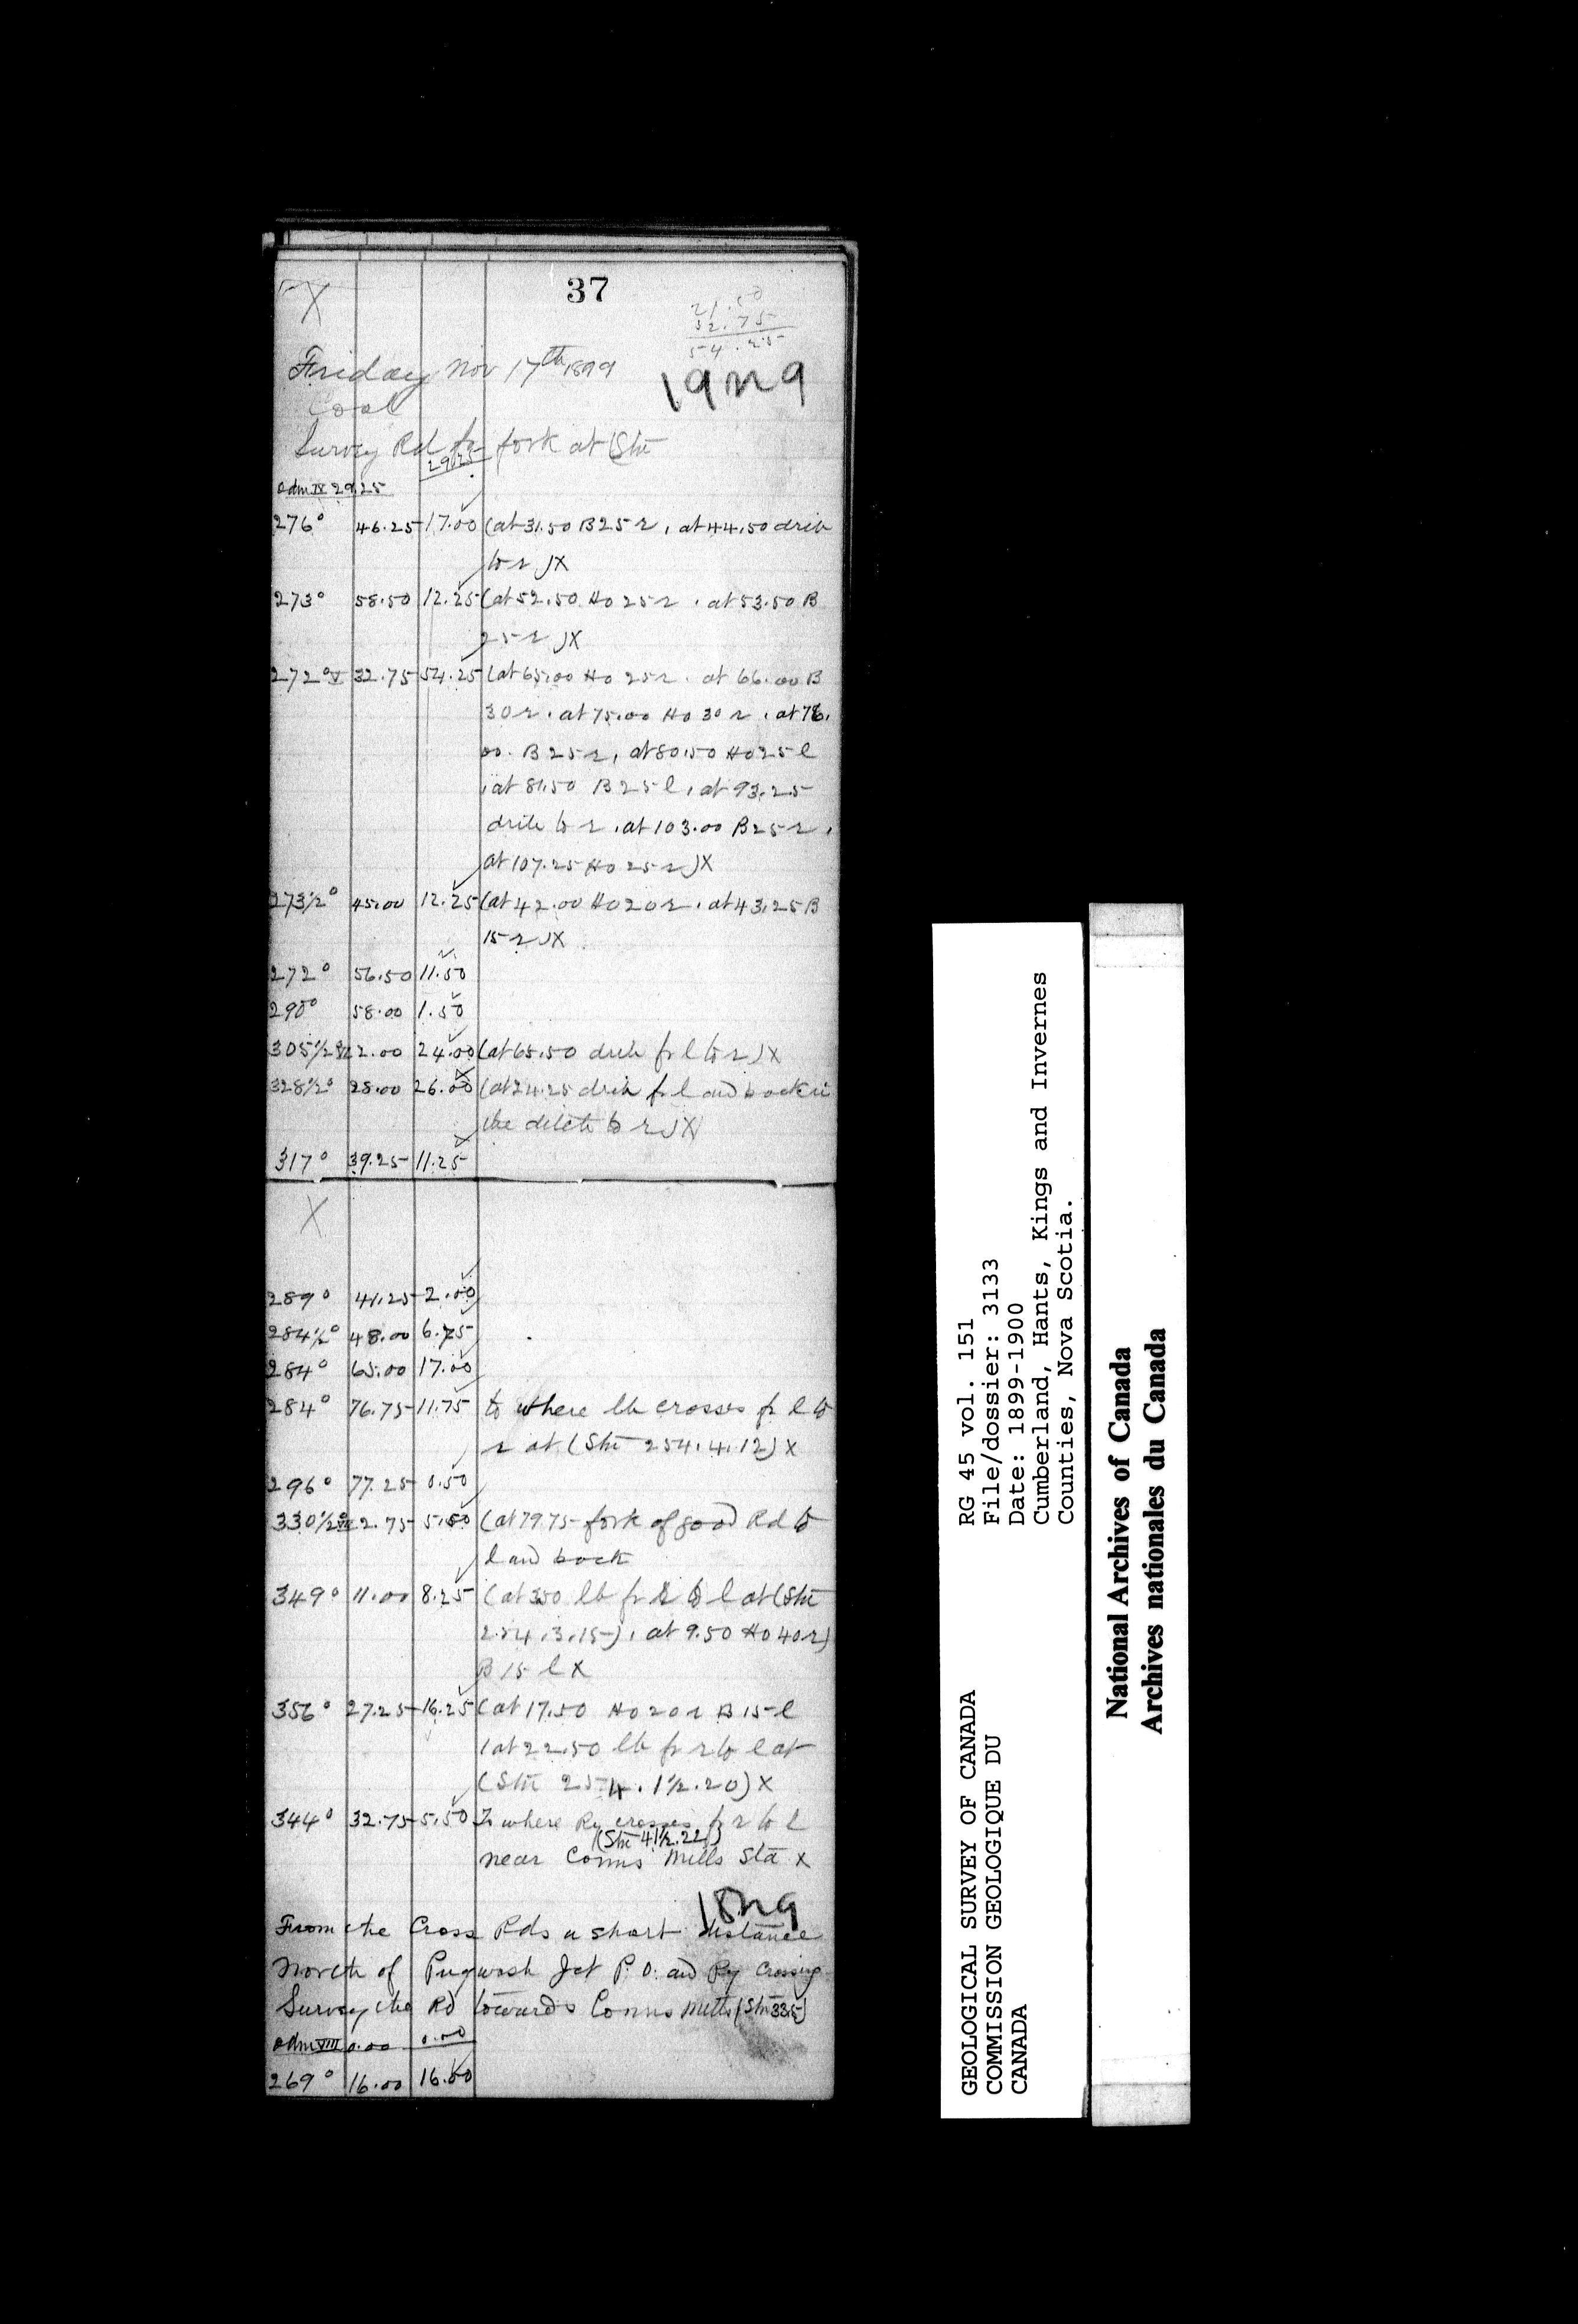 37
X
21.50
32.75
54.25
Friday Nov 17th 1899
19n9
Cool
Survey Rd fr fork at (Stn
29.25
Odm IV 29.25
276° 46.25 17.00 (at 31.50 B 25 r, at 44.50 drib
to r) X
273° 58.50 12.25 (at 52.50 Ho 25 r, at 53.50 B
25 r) X
272° V 32.75 54.25 (at 65.00 Ho 25 r. at 66.00 B
30 r. at 75.00 Ho 30 r, at 76.
00. B 25 r, at 80.50 Ho 25 l
, at 81.50 B 25 l, at 93.25
drib to r, at 103.00 B 25 r,
at 107.25 Ho 25 r) X
273½° 45.00 12.25 (at 42.00 Ho 20 r, at 43.25 B
15 r) X
272° 56.50 11.50
290° 58.00 1.50
305½° VI 2.00 24.00 (at 65.50 drib fr l to r) X
328½° 28.00 26.00 (at 24.25 drib fr l and back in
the ditch to r) X
317° 39.25 11.25
X
289° 41.25 2.00
284½° 48.00 6.75
284° 65.00 17.00
284° 76.75 11.75 to where lb crosses fr l to
r at (Stn 254.4.12) X
296° 77.25 0.50
330½° VII 2.75 5.50 (at 79.75 fork of good Rd to
l and back
349° 11.00 8.25 (at 3.50 lb fr r to l at (Stn
254.3.15), at 9.50 Ho 40 r)
B 15 l X
356° 27.25 16.25 (at 17.50 Ho 20 r B 15 l
, at 22.50 lb fr r to l at
(Stn 254.1½.20) X
344° 32.75 5.50 To where Ry crosses fr r to l
(Stn 41½.22)
near Conns Mills Sta X
18n9
From the Cross Rds a short distance
North of Pugwash Jct P.O. and Ry Crossing
Survey the Rd towards Conns Mills (Stn 335)
Odm VIII 0.00 0.00
269° 16.00 16.00
GEOLOGICAL SURVEY OF CANADA
COMMISSION GEOLOGIQUE DU
CANADA
RG 45 vol. 151
File/dossier: 3133
Date: 1899-1900
Cumberland, Hants, Kings and Invernes
Counties, Nova Scotia.
National Archives of Canada
Archives nationales du Canada